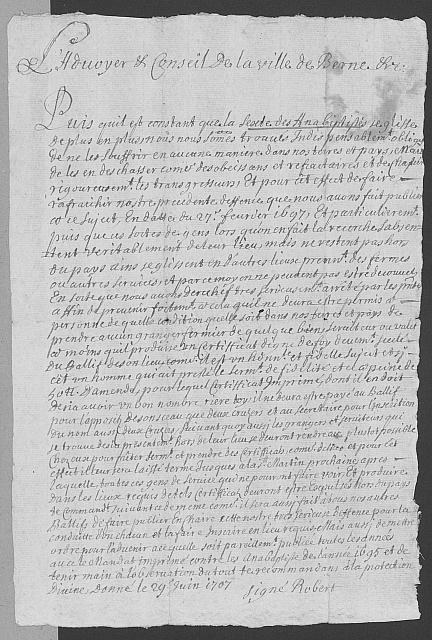 L'Advoyer & Conseil De la ville de Berne &c:
Puis quil est constant que la Secte des Anabaptistes se glisse
de plus en plus nous nous somes trouvés Indispensablemt obligés
de ne les souffrir en aucune maniere dans nos terres et pays, Mais
de les en deschasser come desobeissans et refractaires et de chastier
rigoureusement les transgresseurs Et pour cet effect de faire
rafraichir nostre precedente deffence que nous avons fait publier
a ce sujet. En datte du 27e fevrier 1697. Et particulieremt
puis que ces sortes de gens lors quon en fait la recherche s'absen-
tent veritablement de leur lieu, mais ne vont pas hors
du pays ains se glissent en d'autres lieux prennt des fermes
ou autres services et par ce moyen ne peuvent pas estre decouverts
En sorte que nous avons derechef tres serieusemt arreté par les presentes
affin de prevenir fortemt a cela quil ne devra estre permis a
personne de quelle condition quelle soit dans nos terres et pays de
prendre aucun granger fermier de quelque bien serviteur ou valet
a moins quil produise un certificat digne de foy
Du Ballif de son lieu come il est un et fidelle sujet et
soit un homme qui ait presté le Sermt de fidelité et a la peine de
d'amende, pour lequel certificat Imprimé, dont il en doit
avoir un bon nombre riere toy il ne devra estre payé au Ballif
pour l'apposition de son sceau que deux cruzers et au secretaire pour l'inscription
du nom aussi deux cruzers Suivant quoy aussi les grangers et serviteurs qui
se trouve des a present hors de leur lieu se devront rendre au plustot possible
chez eux pour faire serment et prendre des certificats come dessus et pour cet
effect il leur sera laissé terme jusques a la St Martin prochaine apres
laquelle, toutes ces gens de service qui ne pourront faire voir Et produire
dans les lieux requis de tels certificats devront estre Expulsés hors du pays
te comandt suivant ce de meme come il sera aussi fait a tous nos autres
Ballifs de faire publier En chaire cette nostre tres serieuse deffence pour la
conduitte d'un chacun et la faire Inscrire en lieu requis Mais aussi de mettre
ordre pour l'advenir a ce quelle soit pareillement publiée toutes les années
avec le Mandat Imprimé contre les Anabaptistes de l'année 1695 et de
tenir main a l'observation du tout te recommandans a la protection
Divine, Donné le 29e Juin 1707 Signé Robert